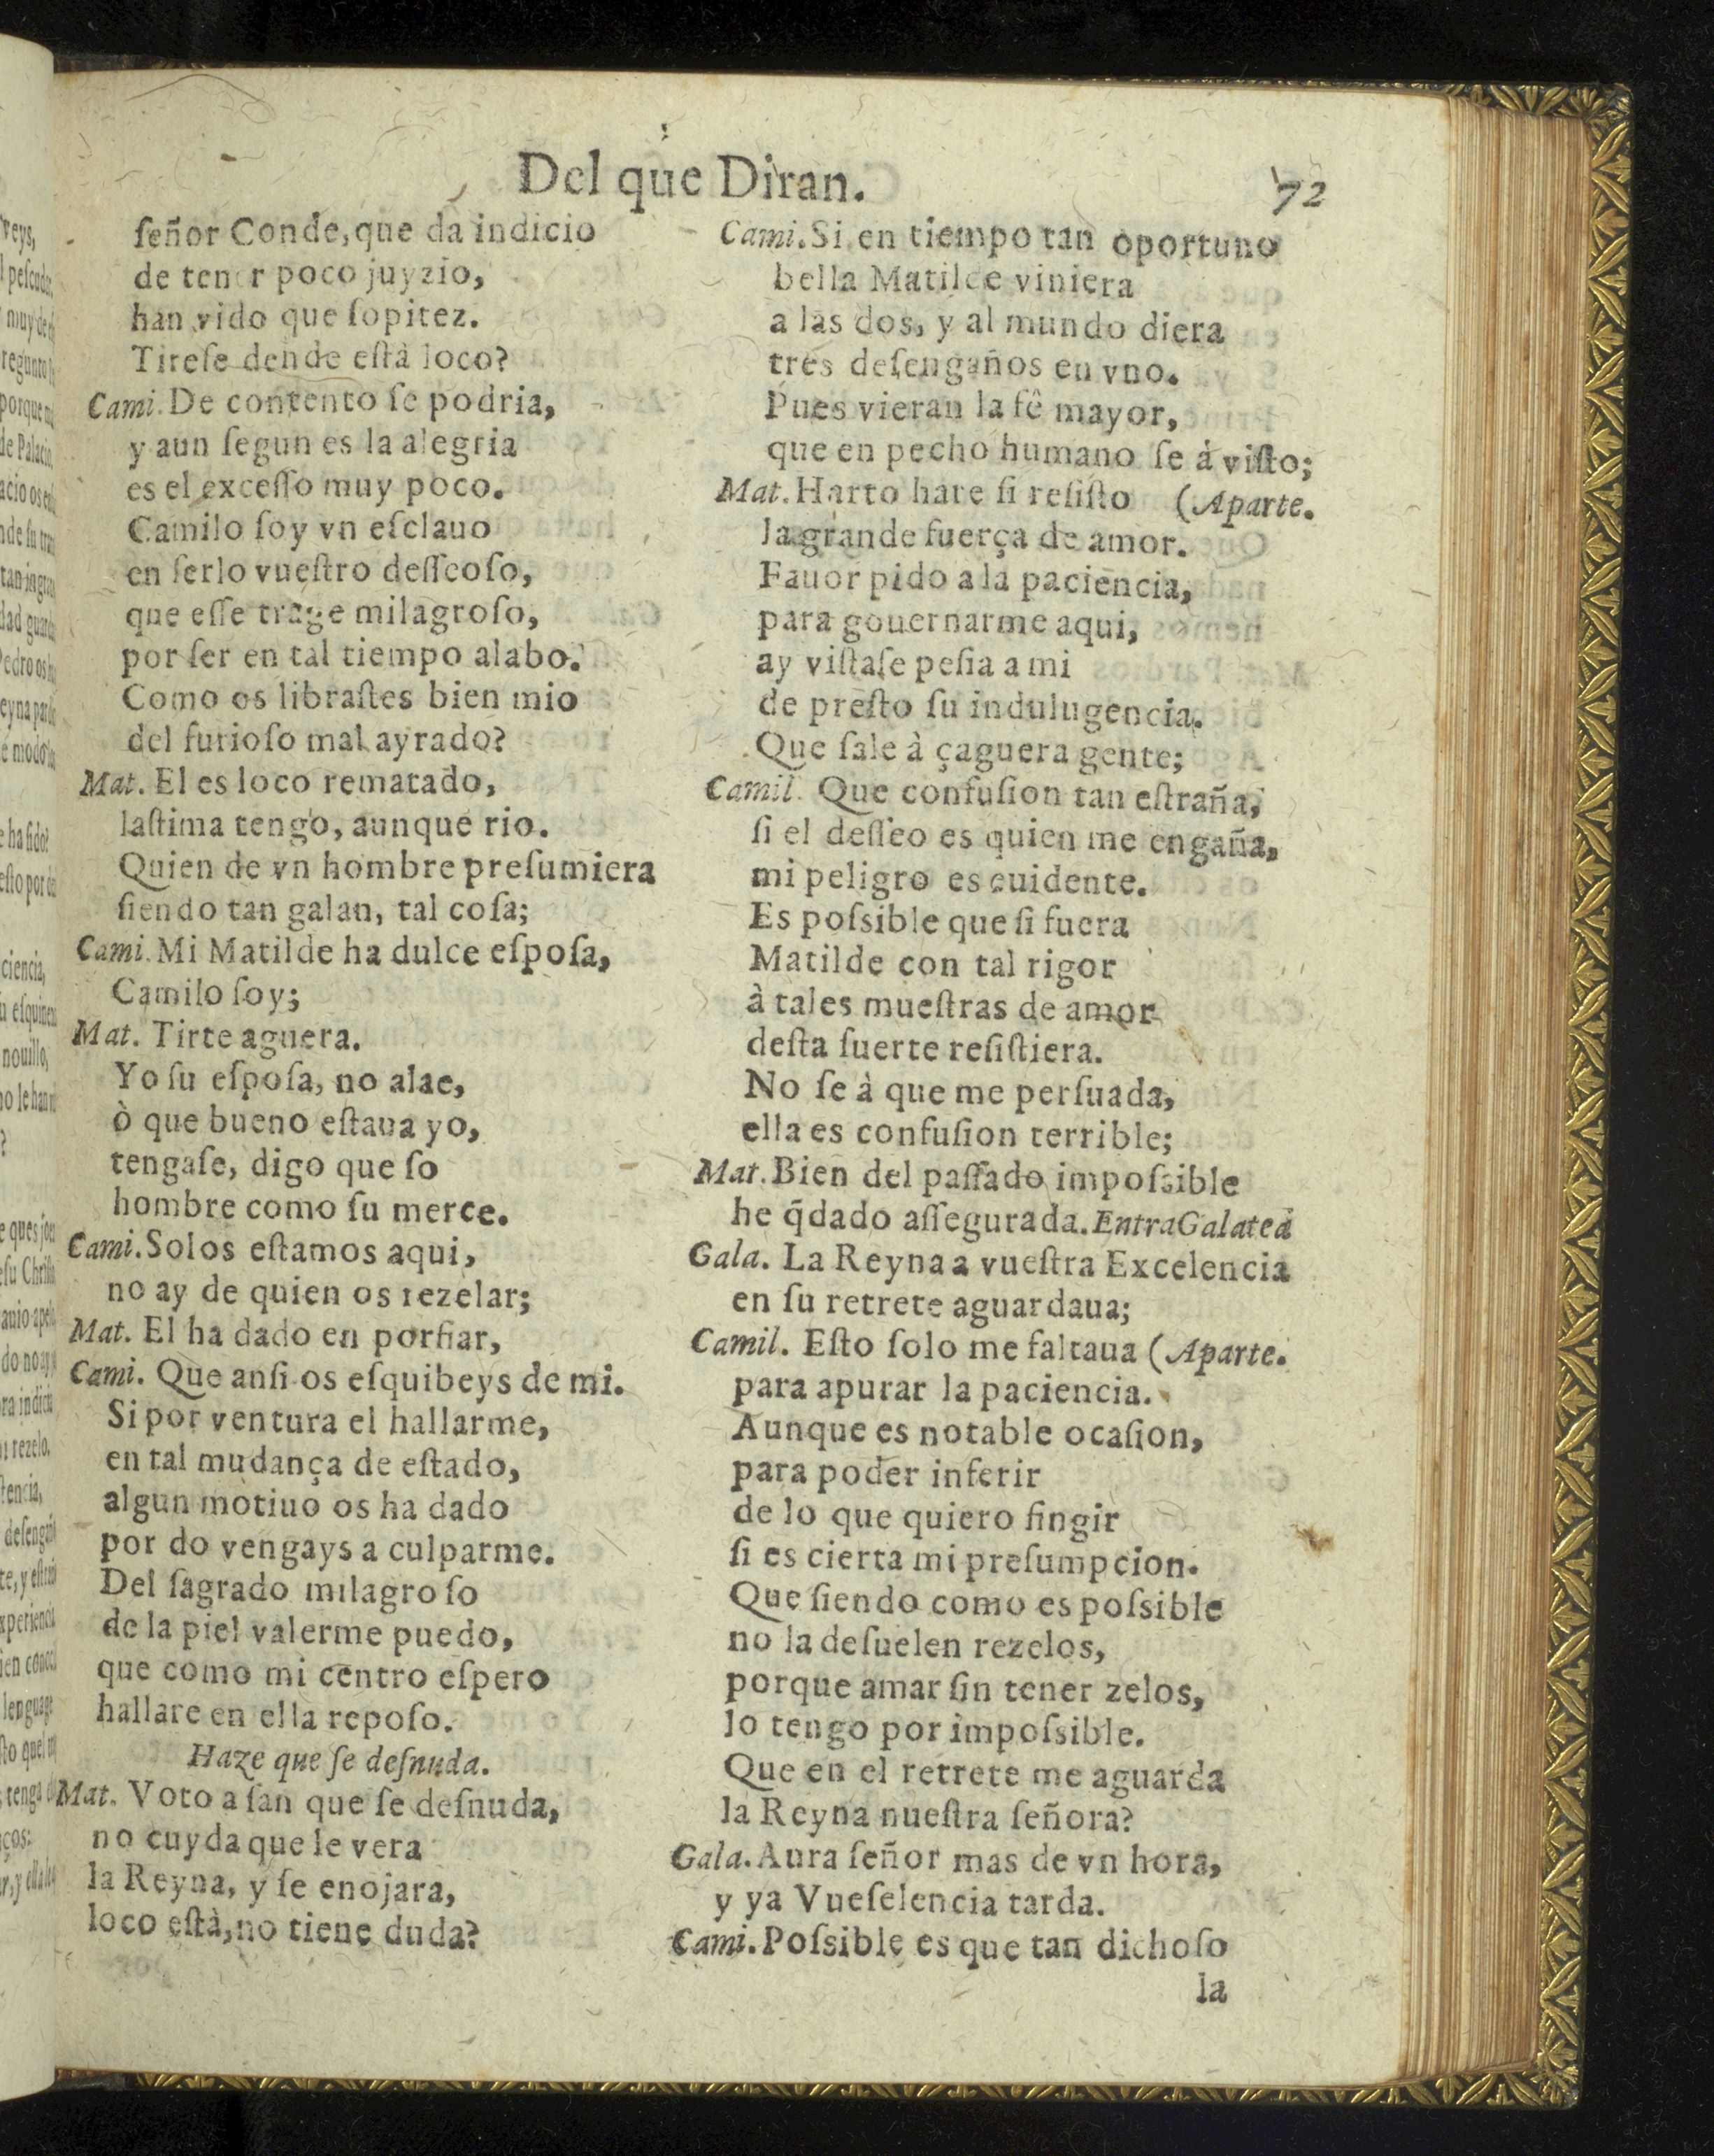 Del que Diran.
72
ſeñor Conde, que da indicio
de tener poco juyzio,
han vido que ſopitez.
Tireſe dende eſtà loco?
Cami. De contento ſe podria,
y aun ſegun es la alegria
es el exceſſo muy poco.
Camilo ſoy vn eſclauo
en ſerlo vueſtro deſſeoſo,
que eſſe trage milagroſo,
por ſer en tal tiempo alabo.
Como os libraſtes bien mio
del furioſo mal ayrado?
Mat. El es loco rematado,
laſtima tengo, aunque rio.
Quien de vn hombre preſumiera
ſiendo tan galan, tal coſa;
Cami. Mi Matilde ha dulce eſpoſa,
Camilo ſoy;
Mat. Tirte aguera.
Yo ſu eſpoſa, no alae,
ò que bueno eſtaua yo,
tengaſe, digo que ſo
hombre como ſu merce.
Cami. Solos eſtamos aqui,
no ay de quien os rezelar;
Mat. El ha dado en porfiar,
Cami. Que anſi os eſquibeys de mi.
Si por ventura el hallarme,
en tal mudança de eſtado,
algun motiuo os ha dado
por do vengays a culparme.
Del ſagrado milagroſo
de la piel valerme puedo,
que como mi centro eſpero
hallare en ella repoſo.
Haze que ſe deſnuda.
Mat. Voto a ſan que ſe deſnuda,
no cuyda que le vera
la Reyna, y ſe enojara,
loco eſtà, no tiene duda?
Cami. Si en tiempo tan oportuno
bella Matilde viniera
a las dos, y al mundo diera
tres deſengaños en vno.
Pues vieran la fê mayor,
que en pecho humano ſe à viſto;
Mat. Harto hare ſi reſiſto (Aparte.
la grande fuerça de amor.
Fauor pido a la paciencia,
para gouernarme aqui,
ay viſtaſe peſia a mi
de preſto ſu indulugencia.
Que ſale à çaguera gente;
Camil. Que confuſion tan eſtraña,
ſi el deſſeo es quien me engaña,
mi peligro es euidente.
Es poſsible que ſi fuera
Matilde con tal rigor
à tales mueſtras de amor
deſta ſuerte reſiſtiera.
No ſe à que me perſuada,
ella es confuſion terrible;
Mat. Bien del paſſado impoſsible
he q̃dado aſſegurada. Entra Galatea
Gala. La Reyna a vueſtra Excelencia
en ſu retrete aguardaua;
Camil. Eſto ſolo me faltaua (Aparte.
para apurar la paciencia.
Aunque es notable ocaſion,
para poder inferir
de lo que quiero fingir
ſi es cierta mi preſumpcion.
Que ſiendo como es poſsible
no la deſuelen rezelos,
porque amar ſin tener zelos,
lo tengo por impoſsible.
Que en el retrete me aguarda
la Reyna nueſtra ſeñora?
Gala. Aura ſeñor mas de vn hora,
y ya Vueſelencia tarda.
Cami. Poſsible es que tan dichoſo
la